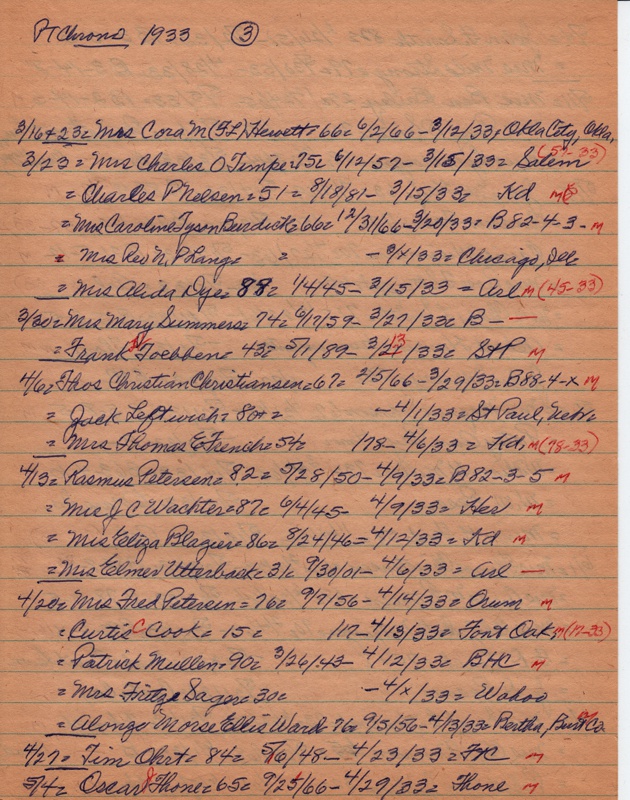 Pt Chrono 1933 3
3/16+23= Mrs Cora M (F L) Hewett= 66= 6/2/66 - 3/12/33= Okla City, Okla.
3/23= Mrs Charles O Timpe= 75= 6/12/57 - 3/15/33= Salem (57-33)
= Charles P Nelsen= 51= 8/18/81 - 3/15/33= Kd m
= Mrs Caroline Tyson Burdick= 66= 12/31/66 - 3/20/33= B 82-4-3- m
= Mrs Rev N P Lang= = - 3/x/33= Chicago, Ill
= Mrs Alida Dye= 88= 1/4/45 - 3/15/33 = Arl m (45-33)
3/30= Mrs Mary Summers= 74= 6/17/59 - 3/27/33= B —
= Frank H Toebben= 43= 5/1/89 - 3/13/33= StP m
4/6= Thos Christian Christiansen= 67= 2/5/66 - 3/29/33= B 88-4-x m
= Jack Leftwich= 80+= - 4/1/33= St Paul, Nebr
= Mrs Thomas E French= 54= /78 - 4/6/33= Kd, m (78-33)
4/13= Rasmus Petersen= 82= 5/28/50 - 4/9/33= B 82-3-5 m
= Mrs J C Wachter= 87= 6/4/45 - 4/9/33= Her m
= Mrs Eliza Blazier= 86= 8/24/46= 4/12/33= Kd m
= Mrs Elmer Utterback= 31= 9/30/01 - 4/6/33= Arl —
4/20= Mrs Fred Petersen= 76= 9/7/56 - 4/14/33= Orum m
= Curtis C Cook= 15= /17 - 4/13/33= Font Oak, m (17-33)
= Patrick Mullen= 90= 3/26/43 - 4/12/33= BHC m
= Mrs Fritze Sager= 30= - 4/x/33= Wahoo
= Alonzo Morse Ellis Ward= 76= 9/5/56 - 4/13/33= Bertha, Burt Co m
4/27= Tim Ohrt= 84= 5/6/48 - 4/23/33= FC m
5/4= Oscar J Thone= 65= 9/25/66 - 4/29/33= Thone m